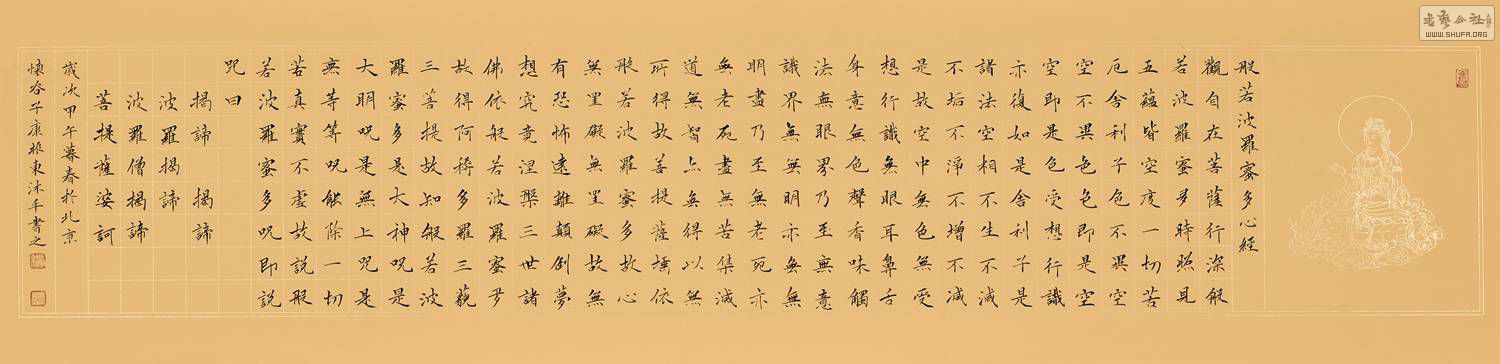 般若波羅蜜多心經
觀自在菩薩行深般
若波羅蜜多時照見
五蘊皆空度一切苦
厄舍利子色不異空
空不異色色即是空
空即是色受想行識
亦復如是舍利子是
諸法空相不生不滅
不垢不淨不增不減
是故空中無色無受
想行識無眼耳鼻舌
身意無色聲香味觸
法無眼界乃至無意
識界無無明亦無無
明盡乃至無老死亦
無老死盡無苦集滅
道無智亦無得以無
所得故菩提薩埵依
般若波羅蜜多故心
無罣礙無罣礙故無
有恐怖遠離顛倒夢
想究竟涅槃三世諸
佛依般若波羅蜜多
故得阿耨多羅三藐
三菩提故知般若波
羅蜜多是大神呪是
大明呪是無上呪是
無等等呪能除一切
苦真實不虛故說般
若波羅蜜多呪即說
呪曰
揭諦 揭諦
波羅揭諦
波羅僧揭諦
菩提薩婆訶
歲次甲午暮春於北京
懷谷子康振東沐手書之
書藝公社
WWW.SHUFA.ORG